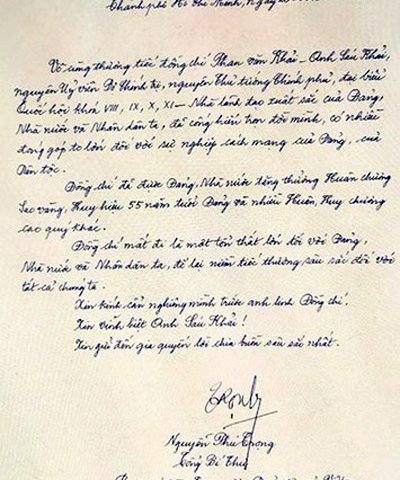 Thành phố Hồ Chí Minh, ngày
Vô cùng thương tiếc đồng chí Phan Văn Khải - Anh Sáu Khải,
nguyên Uỷ viên Bộ Chính trị, nguyên Thủ tướng Chính phủ, đại biểu
Quốc hội khoá VIII, IX, X, XI - Nhà lãnh đạo xuất sắc của Đảng,
Nhà nước và Nhân dân ta, đã cống hiến trọn đời mình, có nhiều
đóng góp to lớn đối với sự nghiệp cách mạng của Đảng, của
Dân tộc.
Đồng chí đã được Đảng, Nhà nước tặng thưởng Huân chương
Sao vàng, Huy hiệu 55 năm tuổi Đảng và nhiều Huân, Huy chương
cao quý khác.
Đồng chí mất đi là một tổn thất lớn đối với Đảng,
Nhà nước và Nhân dân ta, để lại niềm tiếc thương sâu sắc đối với
tất cả chúng ta.
Xin kính cẩn nghiêng mình trước anh linh Đồng chí!
Xin vĩnh biệt Anh Sáu Khải!
Xin gửi đến gia quyến lời chia buồn sâu sắc nhất.
Nguyễn Phú Trọng
Tổng Bí Thư